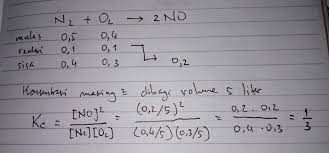 N₂ + O₂ → 2NO
mula2 0,5 0,4
reaksi 0,1 0,1
sisa 0,4 0,3 0,2
Konsentrasi masing2 dibagi volume 5 liter
Kc = [NO]² / [N₂][O₂] = (0,2/5)² / (0,4/5)(0,3/5) = 0,2 . 0,2 / 0,4 . 0,3 = 1/3